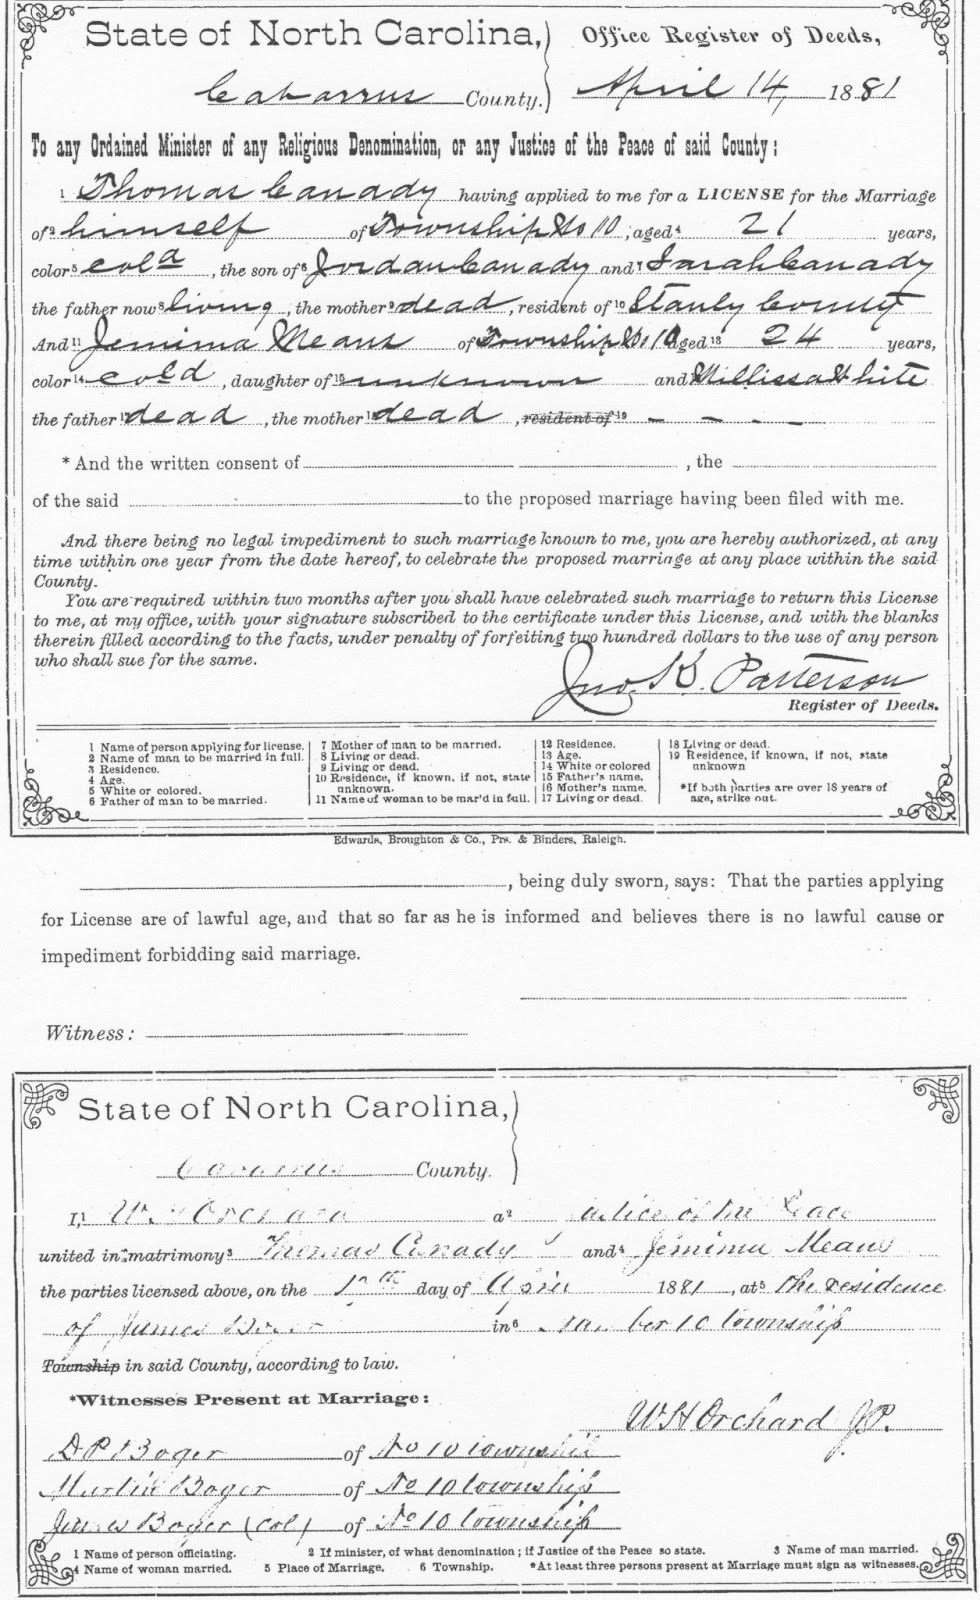 State of North Carolina, Office Register of Deeds,
Cabarrus County. April 14, 1881
To any Ordained Minister of any Religious Denomination, or any Justice of the Peace of said County:
1 Thomas Canady having applied to me for a LICENSE for the Marriage
of 2 himself of Township No 10, aged 4 21 years,
color 5 cold, the son of 6 Jordan Canady and 7 Sarah Canady
the father now 8 living, the mother 9 dead, resident of 10 Stanly County
And 11 Jemima Means of Township No 10 aged 13 24 years,
color 14 cold, daughter of 15 unknown and Millissa White
the father 17 dead, the mother 18 dead, resident of 19 – – – –
* And the written consent of , the
of the said to the proposed marriage having been filed with me.
And there being no legal impediment to such marriage known to me, you are hereby authorized, at any
time within one year from the date hereof, to celebrate the proposed marriage at any place within the said
County.
You are required within two months after you shall have celebrated such marriage to return this License
to me, at my office, with your signature subscribed to the certificate under this License, and with the blanks
therein filled according to the facts, under penalty of forfeiting two hundred dollars to the use of any person
who shall sue for the same.
Jno. K. Patterson
Register of Deeds.
1 Name of person applying for license.
2 Name of man to be married in full.
3 Residence.
4 Age.
5 White or colored.
6 Father of man to be married.
7 Mother of man to be married.
8 Living or dead.
9 Living or dead.
10 Residence, if known, if not, state
unknown.
11 Name of woman to be mar'd in full.
12 Residence.
13 Age.
14 White or colored
15 Father's name.
16 Mother's name.
17 Living or dead.
18 Living or dead.
19 Residence, if known, if not, state
unknown
*If both parties are over 18 years of
age, strike out.
Edwards, Broughton & Co., Prs. & Binders, Raleigh.
, being duly sworn, says: That the parties applying
for License are of lawful age, and that so far as he is informed and believes there is no lawful cause or
impediment forbidding said marriage.
Witness:
State of North Carolina,
Cabarrus County.
I, 1 W. H Orchard a 2 Justice of the Peace
united in matrimony 3 Thomas Canady and 4 Jemima Means
the parties licensed above, on the day of April 1881, at 5 the residence
of James Boger in 6 Number 10 township
Township in said County, according to law.
*Witnesses Present at Marriage:
W H Orchard J.P.
D P Boger of No 10 township
Martin Boger of No 10 township
James Boger (Col) of No 10 township
1 Name of person officiating. 2 If minister, of what denomination; if Justice of the Peace so state. 3 Name of man married.
4 Name of woman married. 5 Place of Marriage. 6 Township. *At least three persons present at Marriage must sign as witnesses.